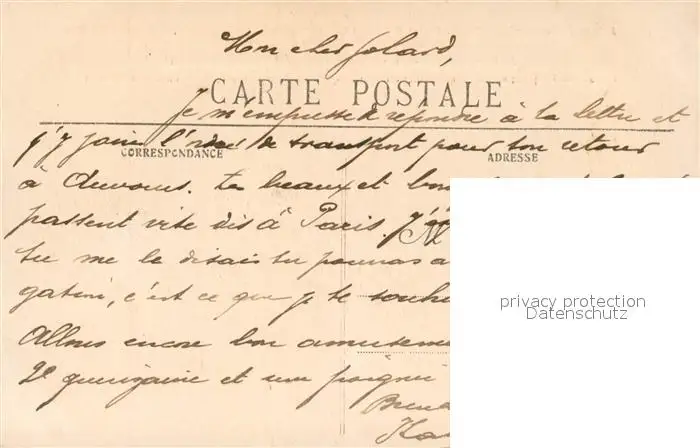 Mon cher Golard,
CARTE POSTALE
Je m'empresse de répondre à ta lettre et
j'y joins l'ordre de transport pour ton retour
CORRESPONDANCE
ADRESSE
à Auvours. Tes beaux et bons
passent vite dis à Paris. J'
tu me le disais tu pourras a
c'est ce que je te souhai
Allons encore bon amuseme
2e quinzaine et une poigné
privacy protection
Datenschutz